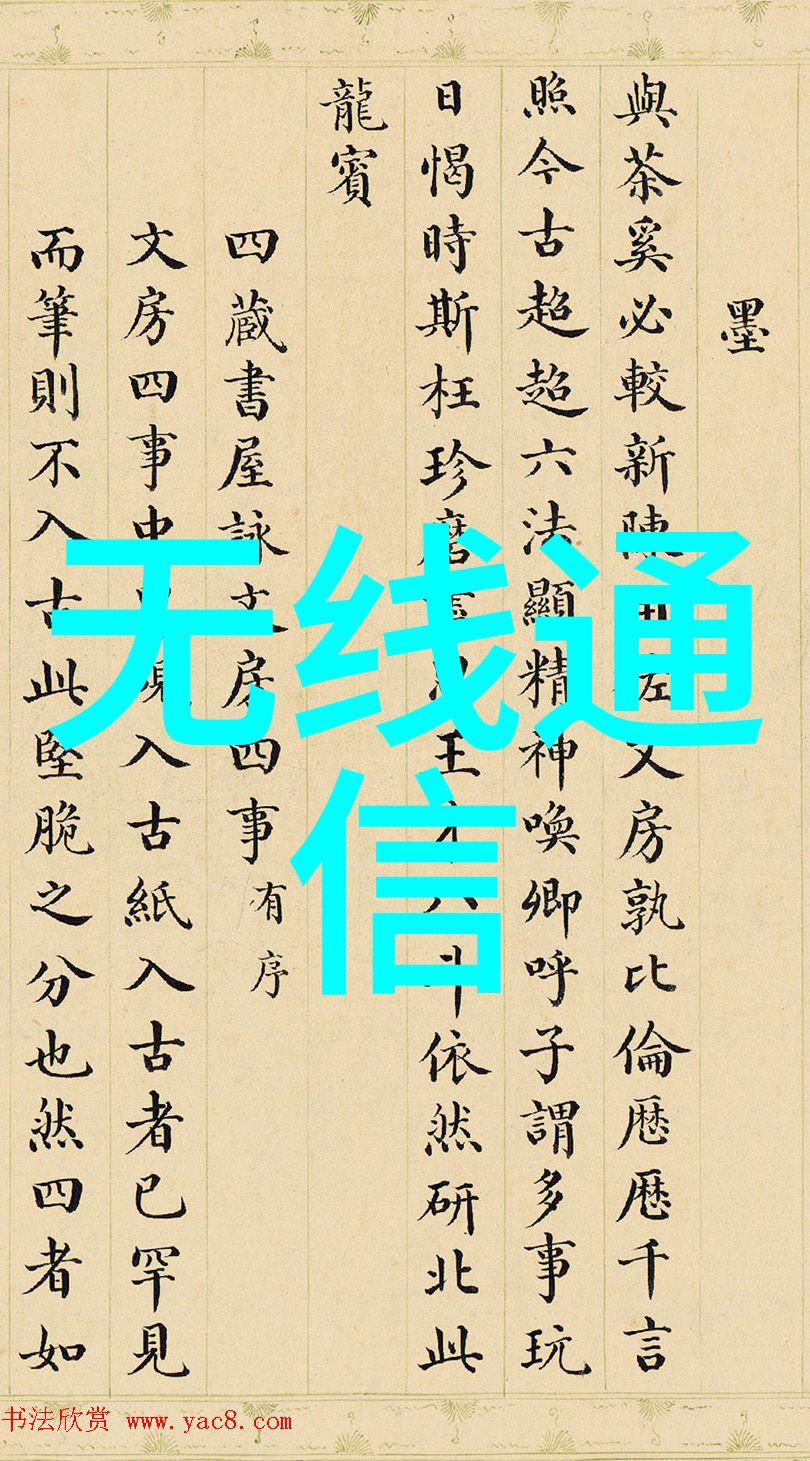 墨
與茶奚必較新陳 文房孰比倫歷歷千言
照今古超超六法顯精神喚卿呼子謂多事玩
日愒時斯枉珍磨 王 依然研北此
龍賓
四蔵書屋詠文房四事有序
文房四事中 入古紙入古者已罕見
而筆則不入古此堅脆之分也然四者如
无线通
信
书法欣赏 www.yac8.com